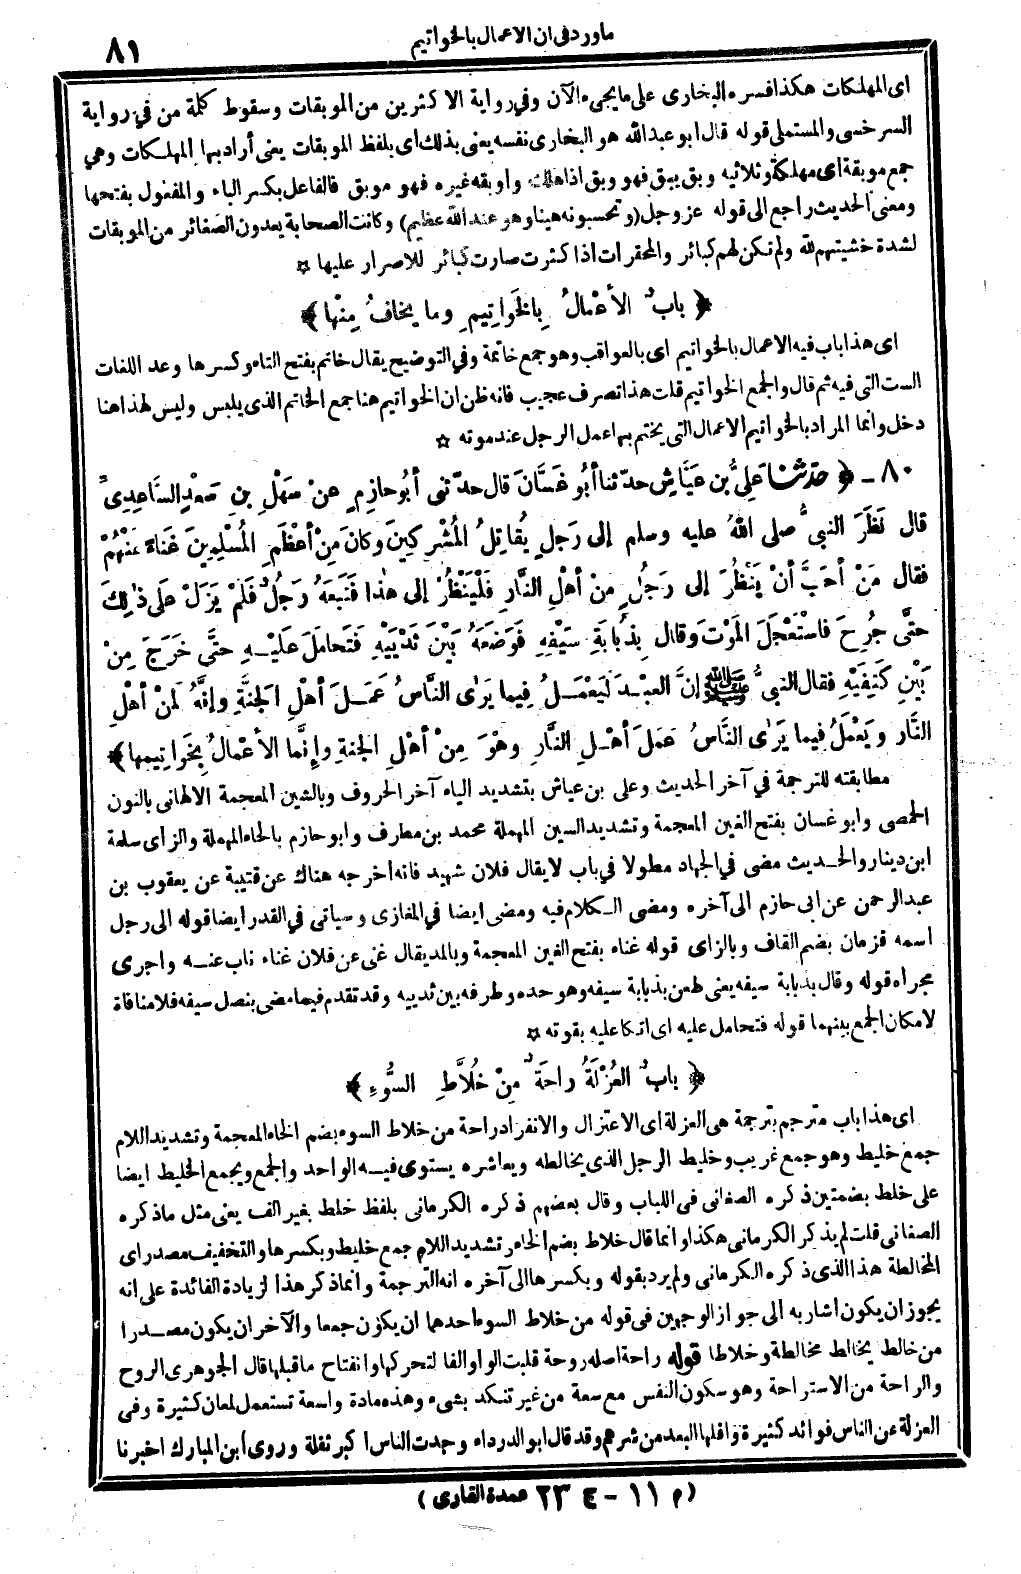 ماورد فى ان الاعمال بالخواتيم
٨١
اى المهلكات هكذا فسره البخارى على مايجىء الآن وفى رواية الاكثرين من الموبقات وسقوط كلمة من فى رواية
السرخسى والمستملى قوله قال ابو عبد الله هو البخارى نفسه يعنى بذلك اى بلفظ الموبقات يعنى أراد بها المهلكات وهى
جمع موبقة اى مهلكة وثلاثيه وبق يبق فهو وبق اذا هلك واوبقه غيره فهو موبق فالفاعل بكسر الباء والمفعول بفتحها
ومعنى الحديث راجع الى قوله عز وجل (وتحسبونه هينا وهو عند الله عظيم) وكانت الصحابة يعدون الصغائر من الموبقات
لشدة خشيتهم لله ولم تكن لهم كبائر والمحقرات اذا كثرت صارت كبائر للاصرار عليها ☆
﴿ بابٌ الأعْمالُ بِالخَواتِيمِ وما يخافُ مِنْها ﴾
اى هذا باب فيه الاعمال بالخواتيم اى بالعواقب وهو جمع خاتمة وفى التوضيح يقال خاتم بفتح التاء وكسرها وعد اللغات
الست التى فيه ثم قال والجمع الخواتيم قلت هذا تصرف عجيب فانه ظن ان الخواتيم هنا جمع الخاتم الذى يلبس وليس لهذا هنا
دخل وانما المراد بالخواتيم الاعمال التى يختم بها عمل الرجل عند موته ☆
٨٠ - ﴿ حدّثنا عَلِيُّ بن عَيَّاشٍ حدّثنا أبُو غَسَّانَ قال حدّثنى أبُو حازِمٍ عنْ سَهْلِ بنِ سَعْدٍ السَّاعِدِىِّ
قال نَظَرَ النبىُّ صلى اللهُ عليه وسلم إلى رَجلٍ يُقاتِلُ المُشْرِكِينَ وكانَ مِنْ أعْظَمِ المُسْلِمِينَ غَناءً عَنْهُمْ
فقال مَنْ أحَبَّ أنْ يَنْظُرَ إلى رَجُلٍ مِنْ أهْلِ النَّارِ فَلْيَنْظُرْ إلى هٰذا فَتَبِعَهُ رَجُلٌ فَلَمْ يَزَلْ عَلى ذٰلِكَ
حتَّى جُرِحَ فاسْتَعْجَلَ المَوْتَ وقال بِذُبابَةِ سَيْفِهِ فَوَضَعَهُ بَيْنَ ثَدْيَيْهِ فَتَحامَلَ عَلَيْهِ حتَّى خَرَجَ مِنْ
بَيْنِ كَتِفَيْهِ فقال النبىُّ ﷺ إنَّ العبْدَ لَيَعْمَلُ فِيما يَرَى النَّاسُ عَمَلَ أهْلِ الجنَّةِ وإنَّهُ لَمِنْ أهْلِ
النَّارِ ويَعْمَلُ فِيما يَرَى النَّاسُ عَمَلَ أهْلِ النَّارِ وهْوَ مِنْ أهْلِ الجنةِ وإنَّما الأعْمالُ بِخَواتِيمِها ﴾
مطابقته للترجمة فى آخر الحديث وعلى بن عياش بتشديد الياء آخر الحروف وبالشين المعجمة الالهانى بالنون
الحمصى وابو غسان بفتح الغين المعجمة وتشديد السين المهملة محمد بن مطرف وابو حازم بالحاء المهملة والزاى سلمة
ابن دينار والحديث مضى فى الجهاد مطولا فى باب لا يقال فلان شهيد فانه اخرجه هناك عن قتيبة عن يعقوب بن
عبد الرحمن عن ابى حازم الى آخره ومضى الكلام فيه ومضى ايضا فى المغازى وسياتى فى القدر ايضا قوله الى رجل
اسمه قزمان بضم القاف وبالزاى قوله غناء بفتح الغين المعجمة وبالمد يقال غنى عن فلان غناء ناب عنه واجرى
مجراه قوله وقال بذبابة سيفه يعنى طعن بذبابة سيفه وهو حده وطرفه بين ثدييه وقد تقدم فيما مضى بنصل سيفه فلا منافاة
لامكان الجمع بينهما قوله فتحامل عليه اى اتكا عليه بقوته ☆
﴿ بابٌ العُزْلَةُ راحَةٌ مِنْ خُلَّاطِ السُّوءِ ﴾
اى هذا باب مترجم بترجمة هى العزلة اى الاعتزال والانفراد راحة من خلاط السوء بضم الخاء المعجمة وتشديد اللام
جمع خليط وهو جمع غريب وخليط الرجل الذى يخالطه ويعاشره يستوى فيه الواحد والجمع ويجمع الخليط ايضا
على خلط بضمتين ذكره الصغانى فى اللباب وقال بعضهم ذكره الكرمانى بلفظ خلط بغير الف يعنى مثل ما ذكره
الصغانى قلت لم يذكر الكرمانى هكذا وانما قال خلاط بضم الخاء وتشديد اللام جمع خليط وبكسرها والتخفيف مصدر اى
المخالطة هذا الذى ذكره الكرمانى ولم يرد بقوله وبكسرها الى آخره انه الترجمة وانما ذكر هذا لزيادة الفائدة على انه
يجوز ان يكون اشار به الى جواز الوجهين فى قوله من خلاط السوء احدهما ان يكون جمعا والآخر ان يكون مصدرا
من خالط يخالط مخالطة وخلاطا قوله راحة اصله روحة قلبت الواو الفا لتحركها وانفتاح ما قبلها قال الجوهرى الروح
والراحة من الاستراحة وهو سكون النفس مع سعة من غير تنكد بشىء وهذه مادة واسعة تستعمل لمعان كثيرة وفى
العزلة عن الناس فوائد كثيرة واقلها البعد من شرهم وقد قال ابو الدرداء وجدت الناس اكبر ثقلة وروى ابن المبارك اخبرنا
(م ١١ - ج ٢٣ عمدة القارى)